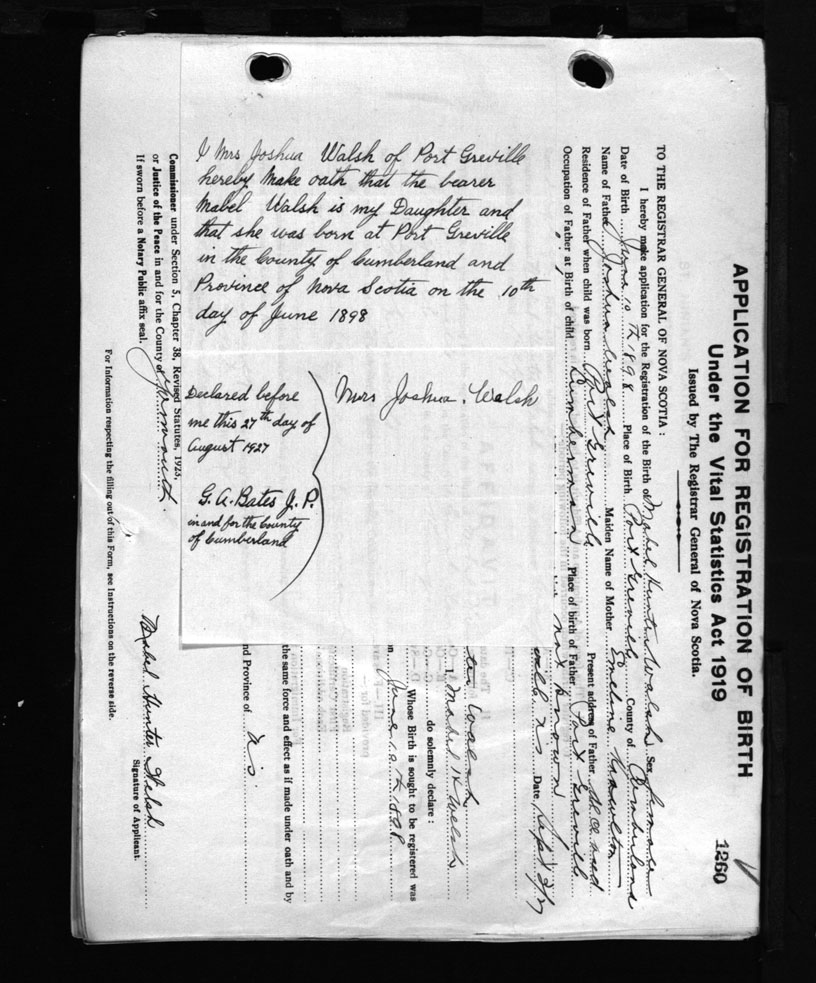 I Mrs Joshua Walsh of Port Greville
hereby make oath that the bearer
Mabel Walsh is my Daughter and
that she was born at Port Greville
in the County of Cumberland and
Province of Nova Scotia on the 10th
day of June 1898
Mrs Joshua. Walsh
Declared before
me this 27th day of
August 1927
G. A. Bates J. P.
in and for the County
of Cumberland
1260
APPLICATION FOR REGISTRATION OF BIRTH
Under the Vital Statistics Act 1919
Issued by The Registrar General of Nova Scotia.
TO THE REGISTRAR GENERAL OF NOVA SCOTIA:
I hereby make application for the Registration of the Birth of Mabel Hunter Walsh Sex Female
Date of Birth June 10th 1898 Place of Birth Port Greville County of Cumberland
Name of Father Joshua Walsh Maiden Name of Mother Emeline
Residence of Father when child was born Port Greville Present address of Father Deceased
Occupation of Father at Birth of child Lumberman Place of birth of Father Port Greville
not known
Date Sept
ter Walsh
I, Mabel H Walsh
do solemnly declare:
Whose Birth is sought to be registered was
on June 10th 1898
the same force and effect as if made under oath and by
nd Province of N.S.
Commissioner under Section 5, Chapter 38, Revised Statutes, 1923,
or Justice of the Peace in and for the County of Yarmouth.
If sworn before a Notary Public affix seal.
Mabel Hunter Walsh
Signature of Applicant.
For Information respecting the filling out of this Form, see Instructions on the reverse side.